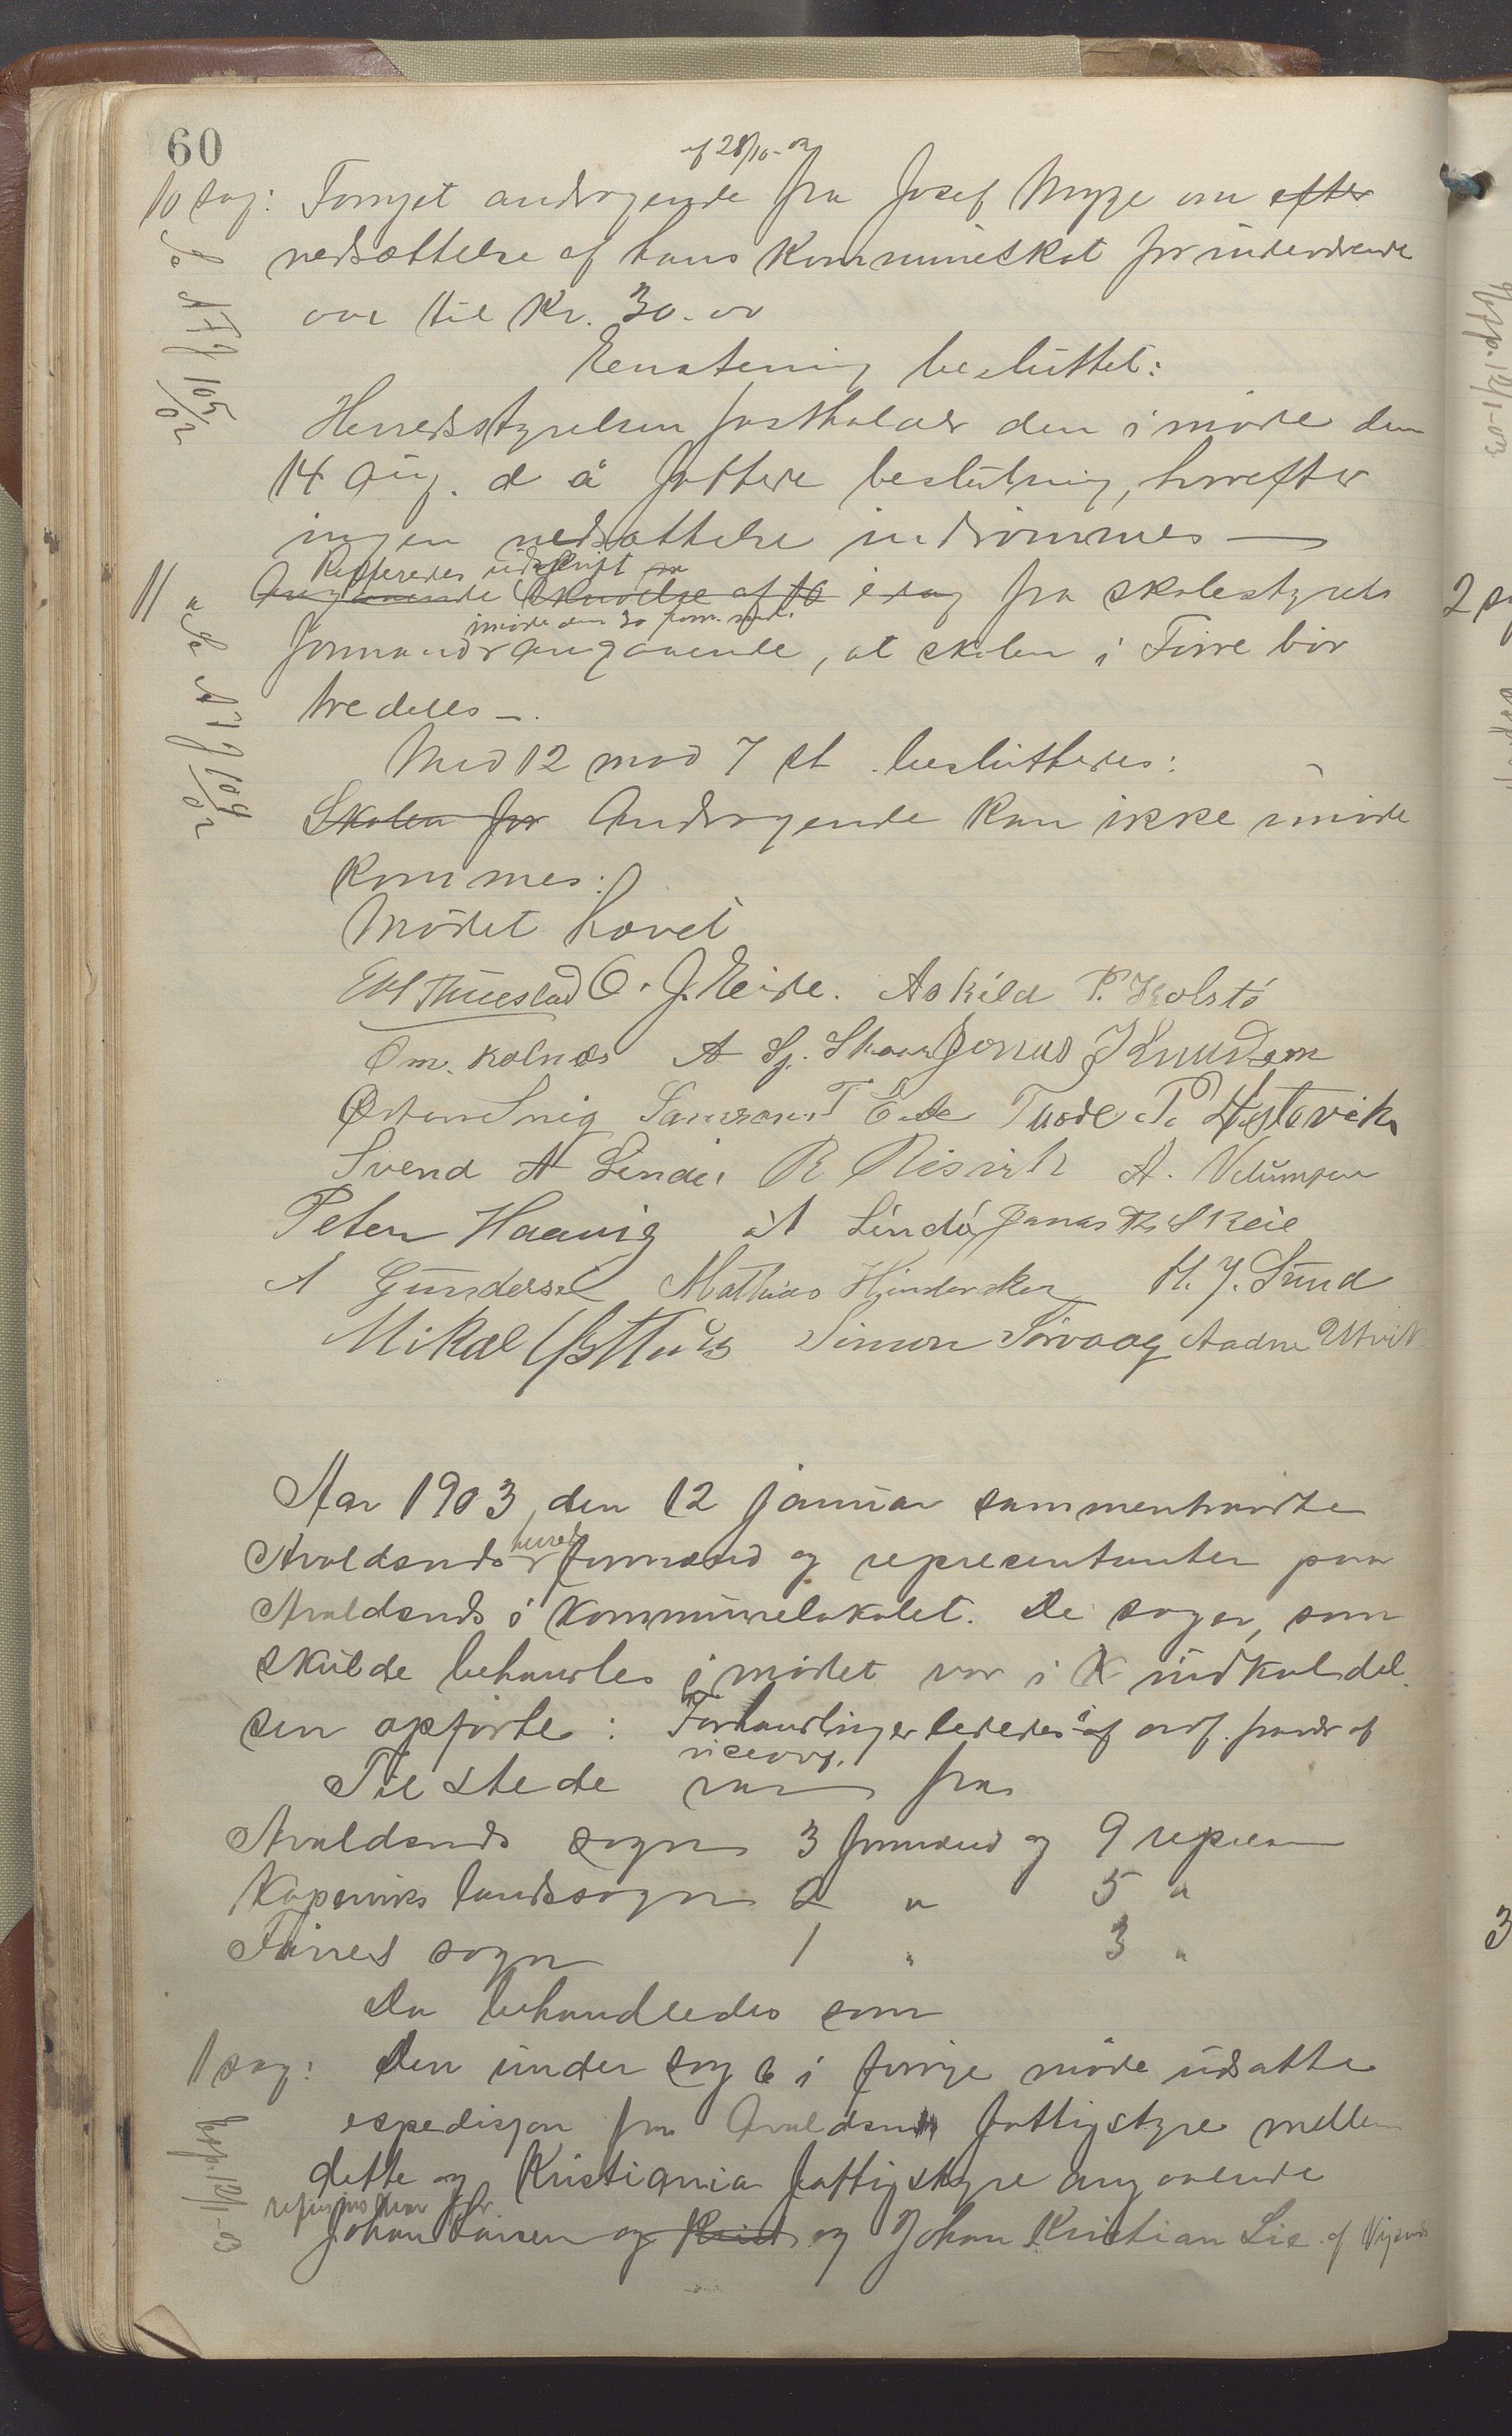 60
af 28/10-02
10 sag: Fornyet andragende fra Josef Mygge om efter
nedsættelse af hans Kommuneskat for indeværende
aar til Kr. 30.00
Enstemig besluttet:
Herredsstyrelsen fastholder den i møde den
14 Aug. d å fattede beslutning, hvorefter
ingen nedsættelse indrømmes —
Refereredes udskrift
11 " Angaaende skrivelse af to idag fra skolestyrets
møde den 30
formandr angaaende, at skolen i Førre bør
tredeles —.
Med 12 mod 7 st. besluttedes:
Skolen for Andragende kan ikke imøde
kommes:
Mødet hævet
O. J. Eide. Askild P. Kolstø
Om. Kolnes A Sj. Jonas J Knudsen
Samson T Eide Tuode P. Hestevik
Svend A Lindø R Risvik A. Velumsen
Peter Haavig A Lindø Jonas Th Skeie
A Gundersen Mathias Hinderaker H. J. Sund
Mikal Østhus Simon Sørvaag Aadne Utvik
Se A 7 J 105/02
Se A 7 J 109/02
Aar 1903, den 12 januar sammentraadte
herreds
Avaldsnds formænd og representanter paa
Avaldsnds i Kommunelokalet. De sager, som
skulde behandles i mødet var i K indkaldel
sen opførte: Forhandlinger lededes af ordf.
viceord.
Tilstede var fra
Avaldsnds sogn 3 formænd og 9 repræs
Koperviks landssogn 2 " 5 "
Førres sogn 1 " 3 "
Da behandledes som
1 sag: Den under sag 6 i forrige møde udsatte
expedisjon fra Avaldsnds fattigstyre mellem
dette og Kristiania fattigstyre angaaende
refusjonskrav for
Johan Larsen og Krist og Johan Kristian Lie.
Exp. 12/1-03
Exp. 12/1-03
2 s
3